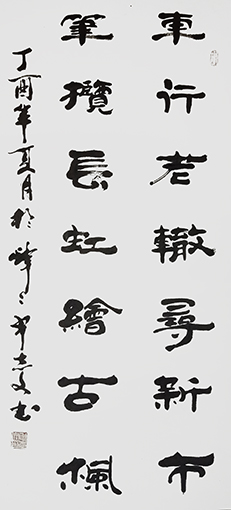 車行老轍尋新市
筆攬長虹繪古楓
丁酉年夏月於